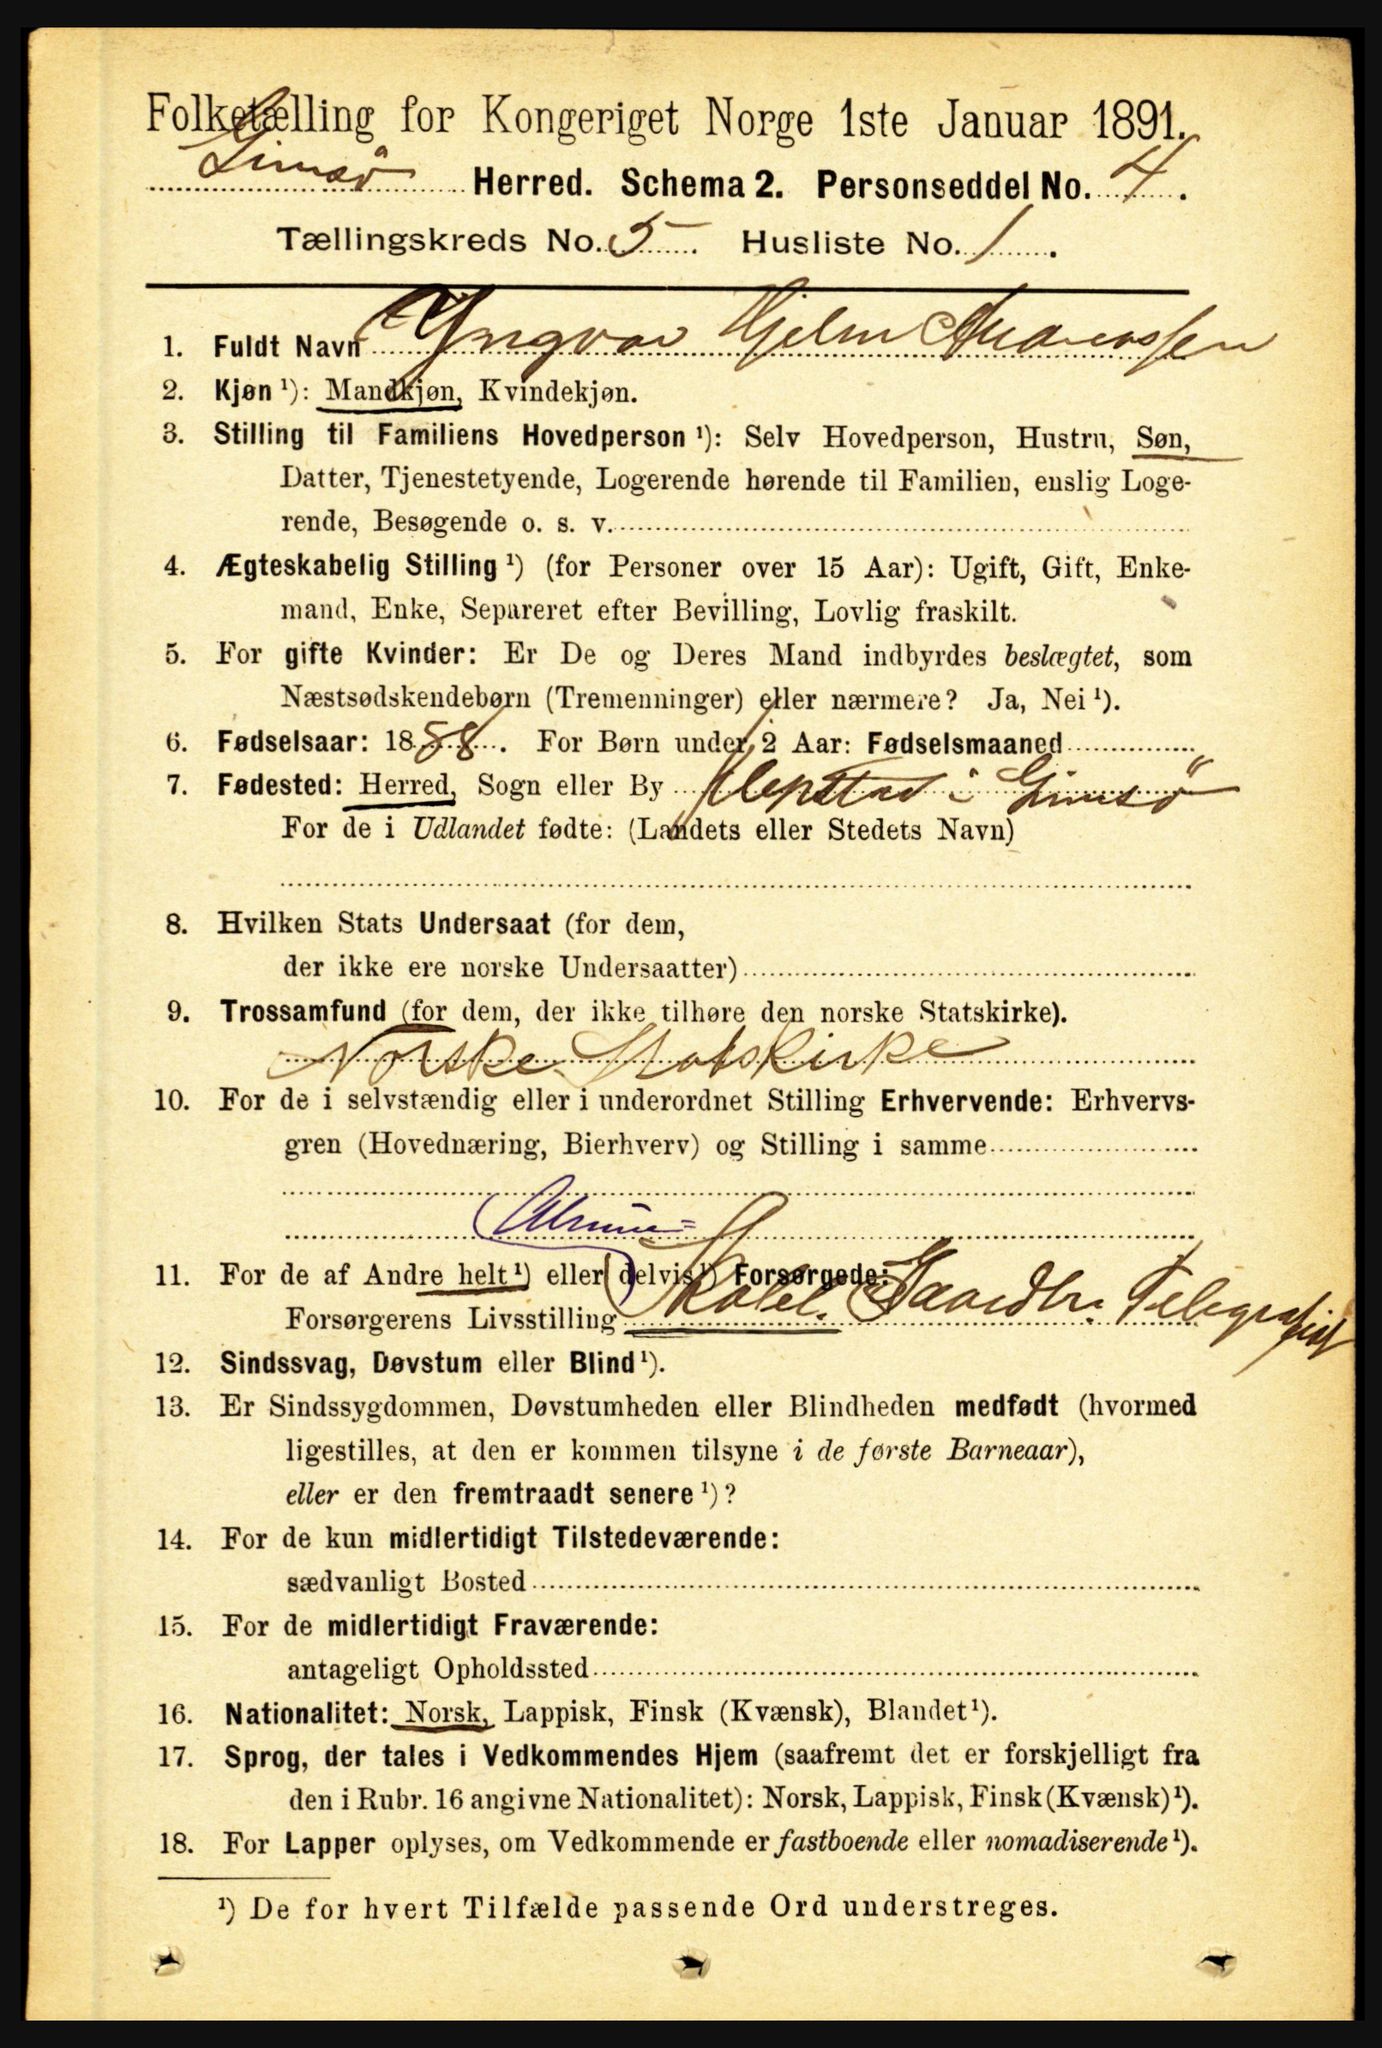 Folketælling for Kongeriget Norge 1ste Januar 1891.
Gimsø Herred. Schema 2. Personseddel No. 4.
Tællingskreds No. 5. Husliste No. 1.
1. Fuldt Navn Yngvar Hjelm Andreassen
2. Kjøn ¹): Mandkjøn, Kvindekjøn.
3. Stilling til Familiens Hovedperson ¹): Selv Hovedperson, Hustru, Søn,
Datter, Tjenestetyende, Logerende hørende til Familien, enslig Loge-
rende, Besøgende o. s. v.
4. Ægteskabelig Stilling ¹) (for Personer over 15 Aar): Ugift, Gift, Enke-
mand, Enke, Separeret efter Bevilling, Lovlig fraskilt.
5. For gifte Kvinder: Er De og Deres Mand indbyrdes beslægtet, som
Næstsødskendebørn (Tremenninger) eller nærmere? Ja, Nei ¹).
6. Fødselsaar: 1888. For Børn under 2 Aar: Fødselsmaaned
7. Fødested: Herred, Sogn eller By Klepstad i Gimsø
For de i Udlandet fødte: (Landets eller Stedets Navn)
8. Hvilken Stats Undersaat (for dem,
der ikke ere norske Undersaatter)
9. Trossamfund (for dem, der ikke tilhøre den norske Statskirke).
Norske Statskirke
10. For de i selvstændig eller i underordnet Stilling Erhvervende: Erhvervs-
gren (Hovednæring, Bierhverv) og Stilling i samme
11. For de af Andre helt ¹) eller delvis ¹) Forsørgede:
Forsørgerens Livsstilling Gaardbr. Telegrafist
12. Sindssvag, Døvstum eller Blind ¹).
13. Er Sindssygdommen, Døvstumheden eller Blindheden medfødt (hvormed
ligestilles, at den er kommen tilsyne i de første Barneaar),
eller er den fremtraadt senere ¹)?
14. For de kun midlertidigt Tilstedeværende:
sædvanligt Bosted
15. For de midlertidigt Fraværende:
antageligt Opholdssted
16. Nationalitet: Norsk, Lappisk, Finsk (Kvænsk), Blandet ¹).
17. Sprog, der tales i Vedkommendes Hjem (saafremt det er forskjelligt fra
den i Rubr. 16 angivne Nationalitet): Norsk, Lappisk, Finsk (Kvænsk) ¹).
18. For Lapper oplyses, om Vedkommende er fastboende eller nomadiserende ¹).
¹) De for hvert Tilfælde passende Ord understreges.